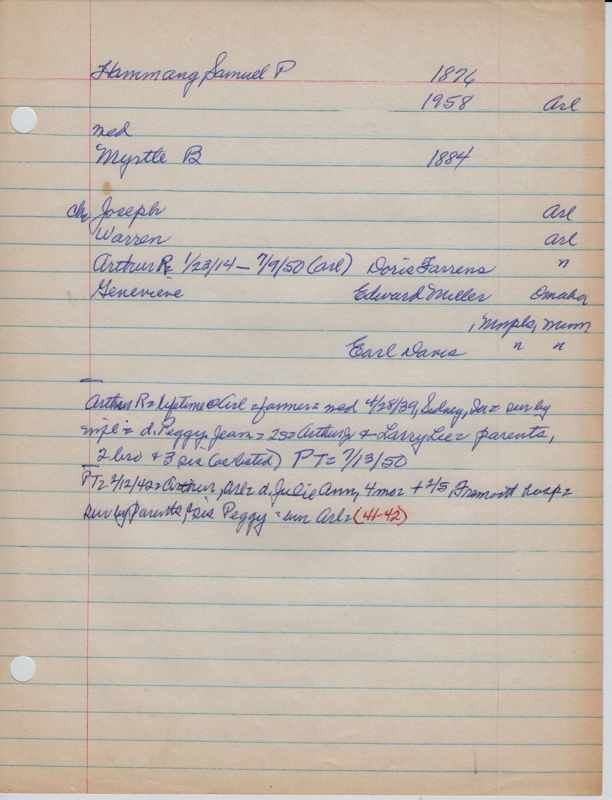 Hammang, Samuel P 1876
1958 Arl
med
Myrtle B 1884
Chr Joseph Arl
Warren Arl
Arthur R= 1/23/14 – 7/9/50 (Arl) Doris Farrens "
Genevieve Edward Miller Omaha
, Mnpls, Minn
Earl Davis " "
Arthur R= lifetime @ Arl = farmer = med 4/28/39, Sidney, Ia = sur by
wife = d. Peggy Jean = 2s = Arthur Jr & Larry Lee = parents,
2 bro & 3 sis (as listed) PT= 7/13/50
PT= 2/12/42 = Arthur, Arl = d. Julie Ann, 4 mos = + 2/5, Fremont hosp =
sur by parents, sis Peggy = Arl = (41-42)